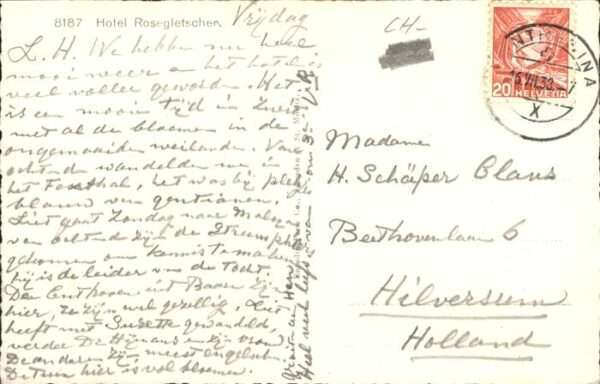 8187 Hotel Rosegletscher.
Vrijdag
L. H. We hebben nu heel
mooi weer en het hotel is
veel voller geworden. Het
is een mooie tijd in
met al de bloemen in de
ongemaaide weilanden. Van
ochtend wandelden we in
het Fexthal, het was bij plek
blauw van gentianen.
Liet gaat Zondag naar
van ochtend zijn de
gekomen om kennis te maken
hij is de leider van de tocht.
De uit Baarn zijn
hier, ze zijn wel gezellig, Liet
heeft met Suzette gewandeld,
verder De en zijn vrouw.
De anderen zijn meest engelsch.
De tuin hier is vol bloemen.
Groeten aan
Heel veel liefs van
CH-
HELVETIA
20
X
Madame
H. Schäper Claus
Beethovenlaan 6
Hilversum
Holland